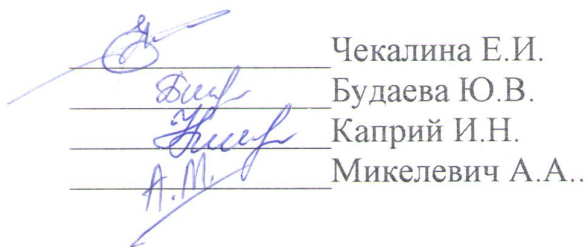 Чекалина Е.И.
Будаева Ю.В.
Каприй И.Н.
А.М. Микелевич А.А..